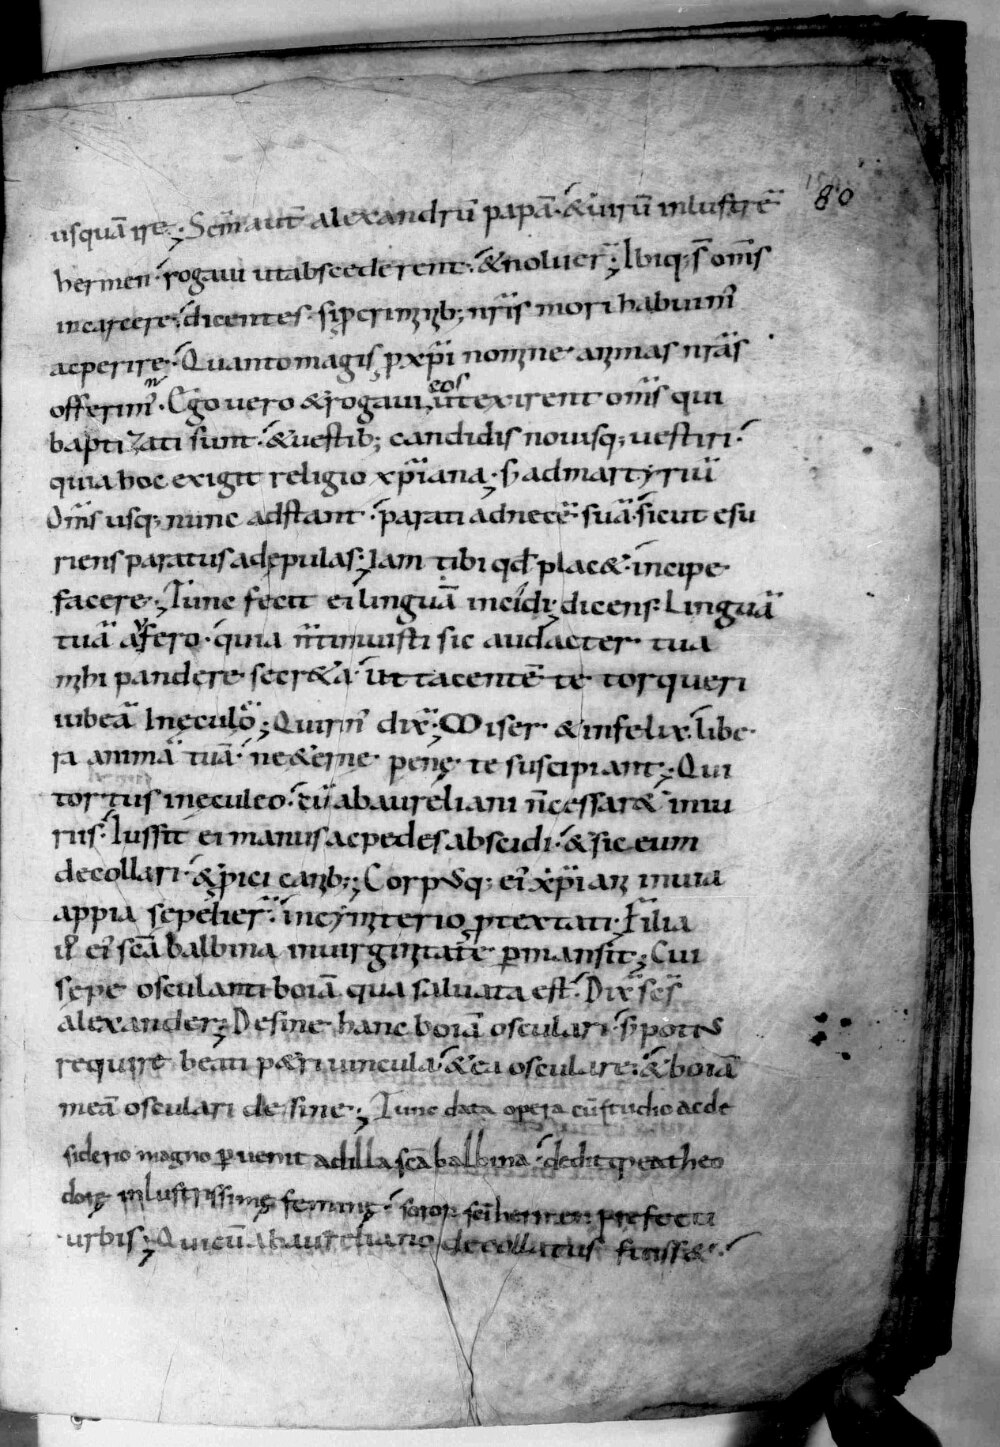 80
usquā ire; Scm̄ aut̄ alexandrū papā· & uirū inlustrē
hermen· rogaui ut abscederent· & noluer̄; Ibiq; s̄ om̄s
in carcere· dicentes· si ꝓ criminib; nr̄is mori habuim̄
ac perire· Quanto magis ꝓ xp̄i nomine· animas nr̄as
offerim̄· Ego uero & rogaui eos ut exirent om̄s qui
baptizati sunt· & uestib; candidis nouisq; uestiri·
quia hoc exigit religio xp̄iana; s; ad martyriū
Om̄s usq; nunc adstant· parati ad necē suā· sicut esu
riens paratus ad epulas; Iam tibi qd̄ plac&· incipe
facere; Tunc fecit ei linguā incidi; dicens· Linguā
tuā aufero· quia n̄ timuisti sic audacter tua
mihi pandere secr&a· ut tacentē te torqueri
iubeā In eculeo; Quirin̄ dix̄; Miser & infelix· libe
ra animā tuā· ne &erne penę te suscipiant; Qui
tortus in eculeo· cū ab aureliani n̄ cessar& iniu
riis· Iussit ei manus ac pedes abscidi· & sic eum
decollari· & ꝓici canib; Corpusq; ei xp̄iani in uia
appia sepelier̄· in cymiterio ꝓtextati· Filia
u° ei sc̄a balbina in uirginitate ꝑmansit; Cui
sępe osculanti boiā qua saluata est· Dix̄ sc̄s
alexander; Desine hanc boiā osculari· s; potius
require beati p&ri uincula· & ea osculare· & boiā
meā osculari desine; Tunc data opera cū studio ac de
siderio magno ꝑuenit ad illa sc̄a balbina· dedit q; ea theo
dorę inlustrissimę feminę· sorori sc̄i hermen prefecti
urbis; Qui cū ab aureliano decollatus fuiss&·